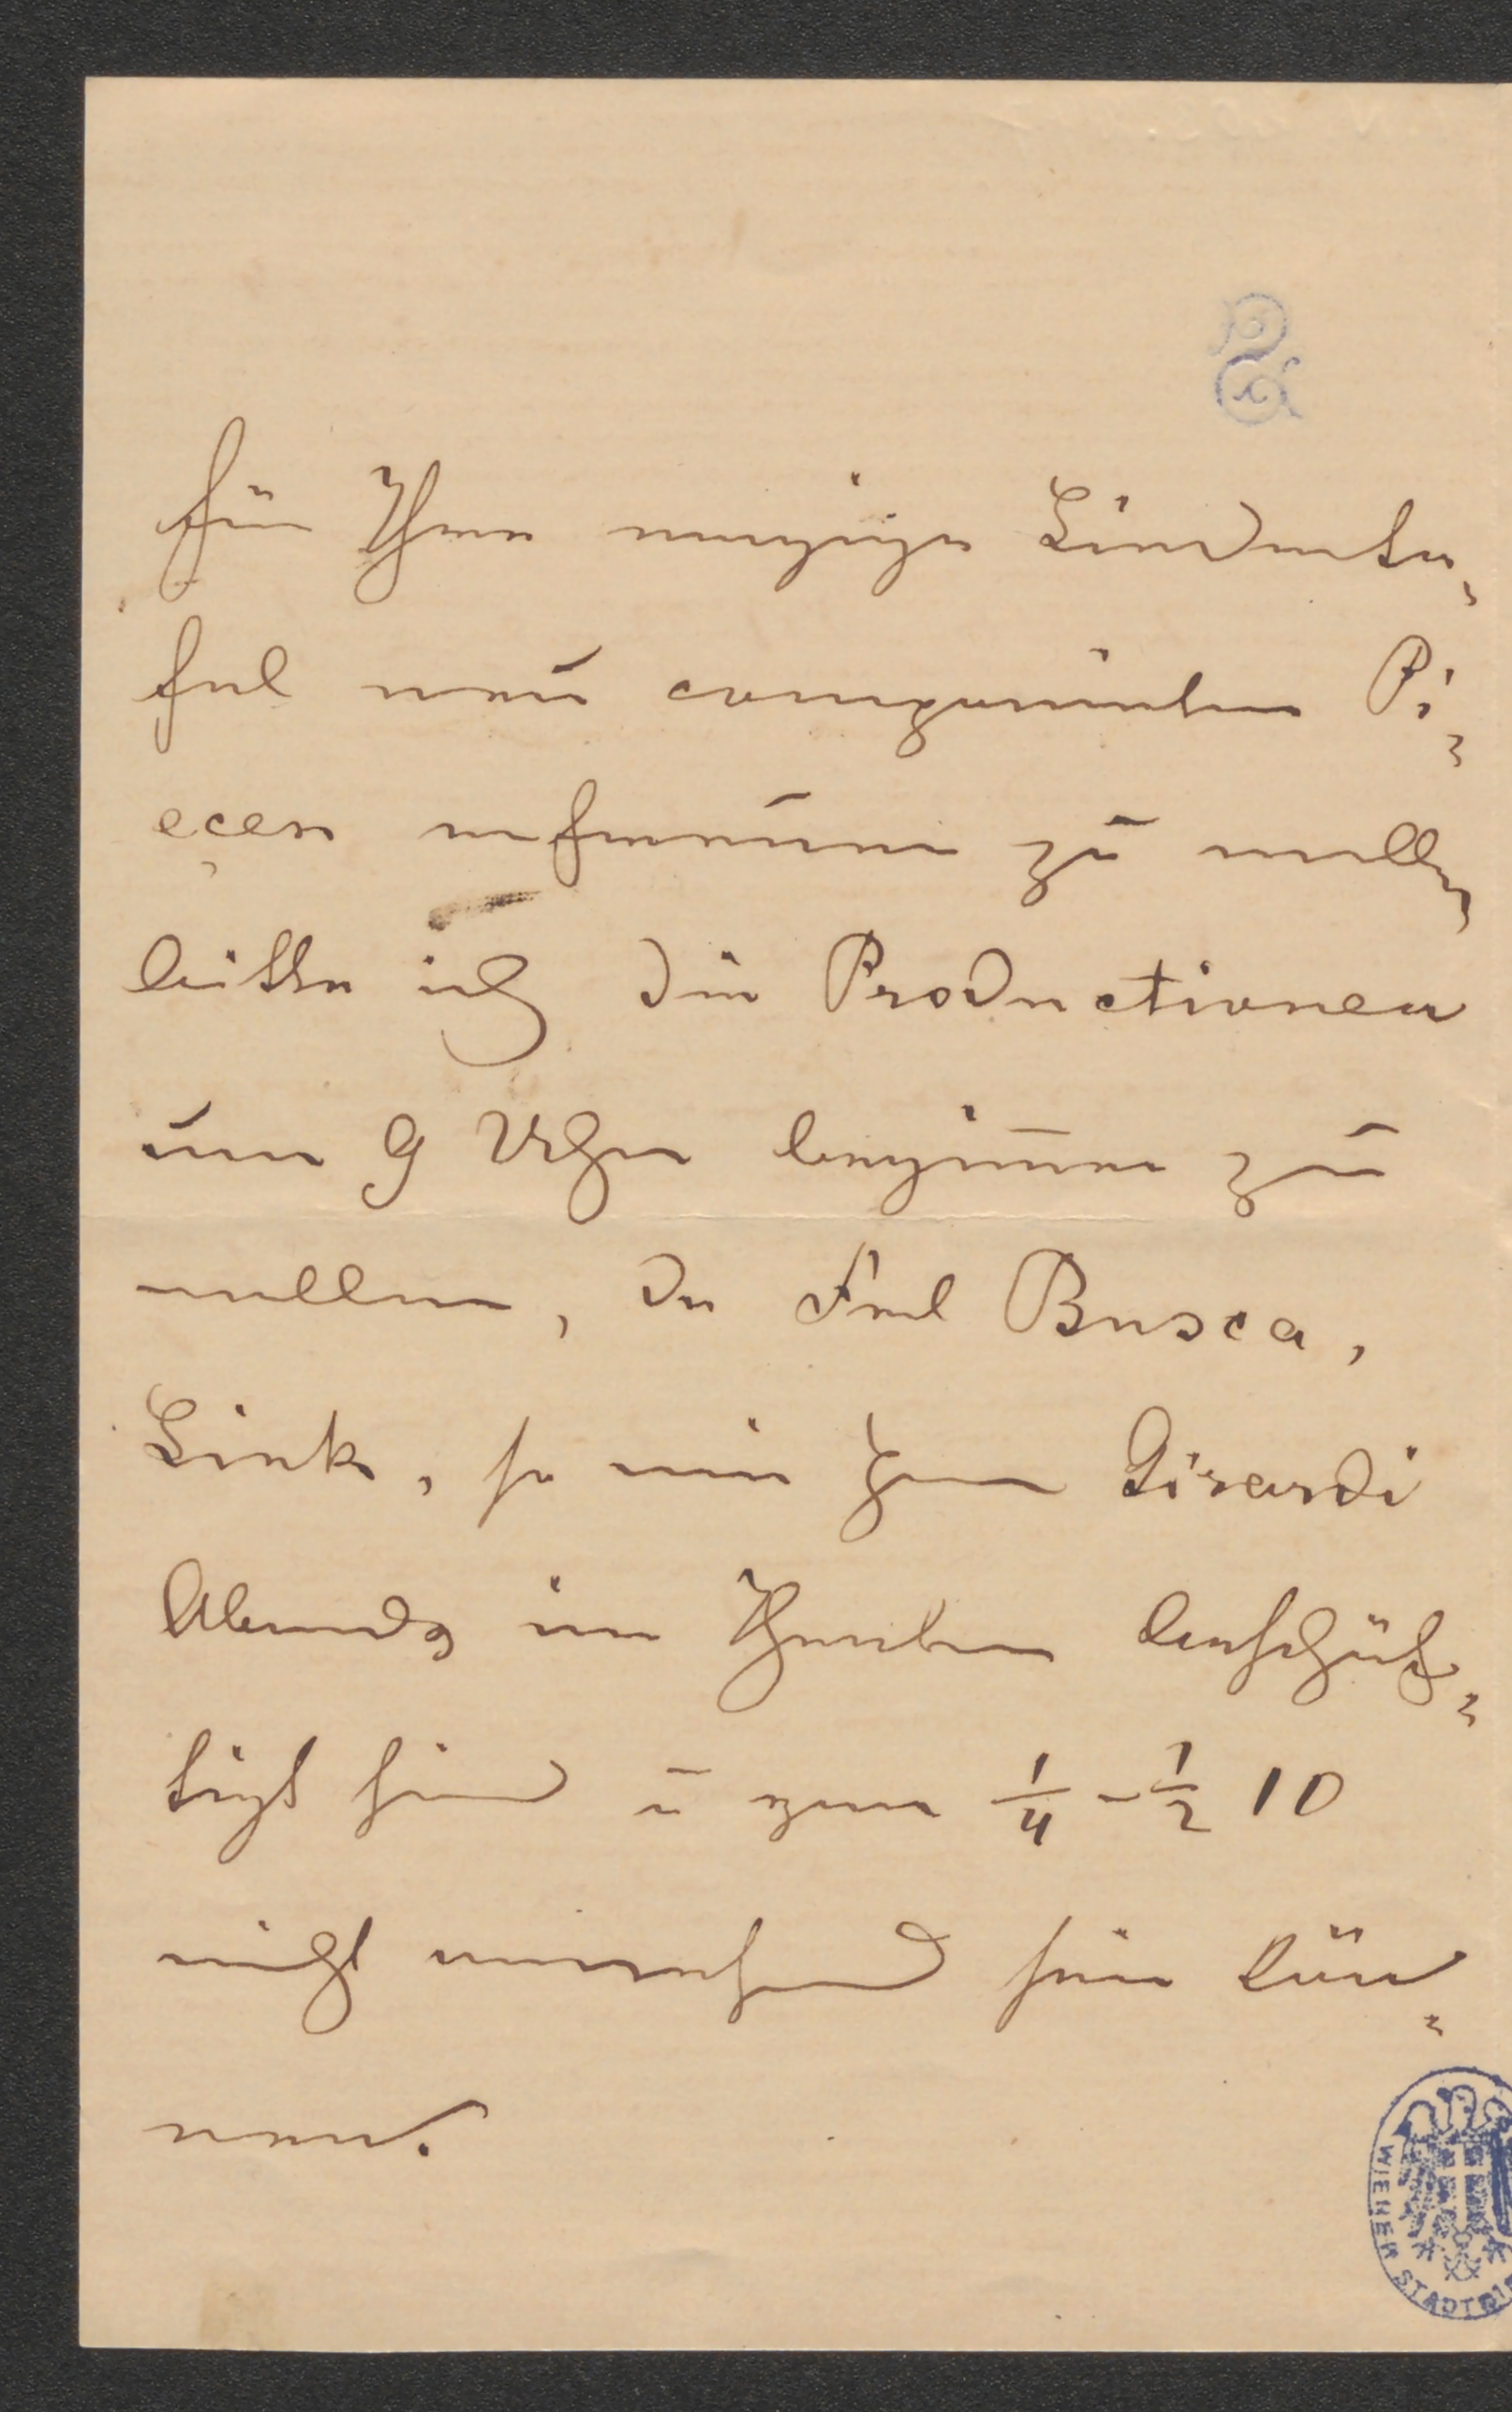 für Ihre morgige Liederta¬
fel neu componirten Pi¬
eçen erfreuen zu wollen
bitte ich die Productionen
um 9 Uhr beginnen zu
wollen, da Frl Busca,
Link, so wie Herr Girardi
Abends im Theater beschäf¬
tigt sind u vor ¼ - ½ 10
nicht anwesend sein kön¬
nen.
WIENER STADTBI